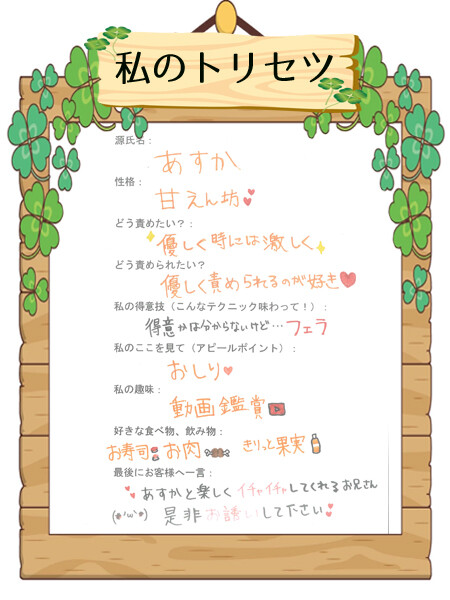 私のトリセツ
源氏名：
あすか
性格：
甘えん坊
どう責めたい？：
優しく時には激しく
どう責められたい？
優しく責められるのが好き
私の得意技（こんなテクニック味わって！）：
得意かは分からないけど…フェラ
私のここを見て（アピールポイント）：
おしり
私の趣味：
動画鑑賞
好きな食べ物、飲み物：
お寿司 お肉 きりっと果実
最後にお客様へ一言：
あすかと楽しくイチャイチャしてくれるお兄さん
(๑'ω'๑) 是非お誘いして下さい